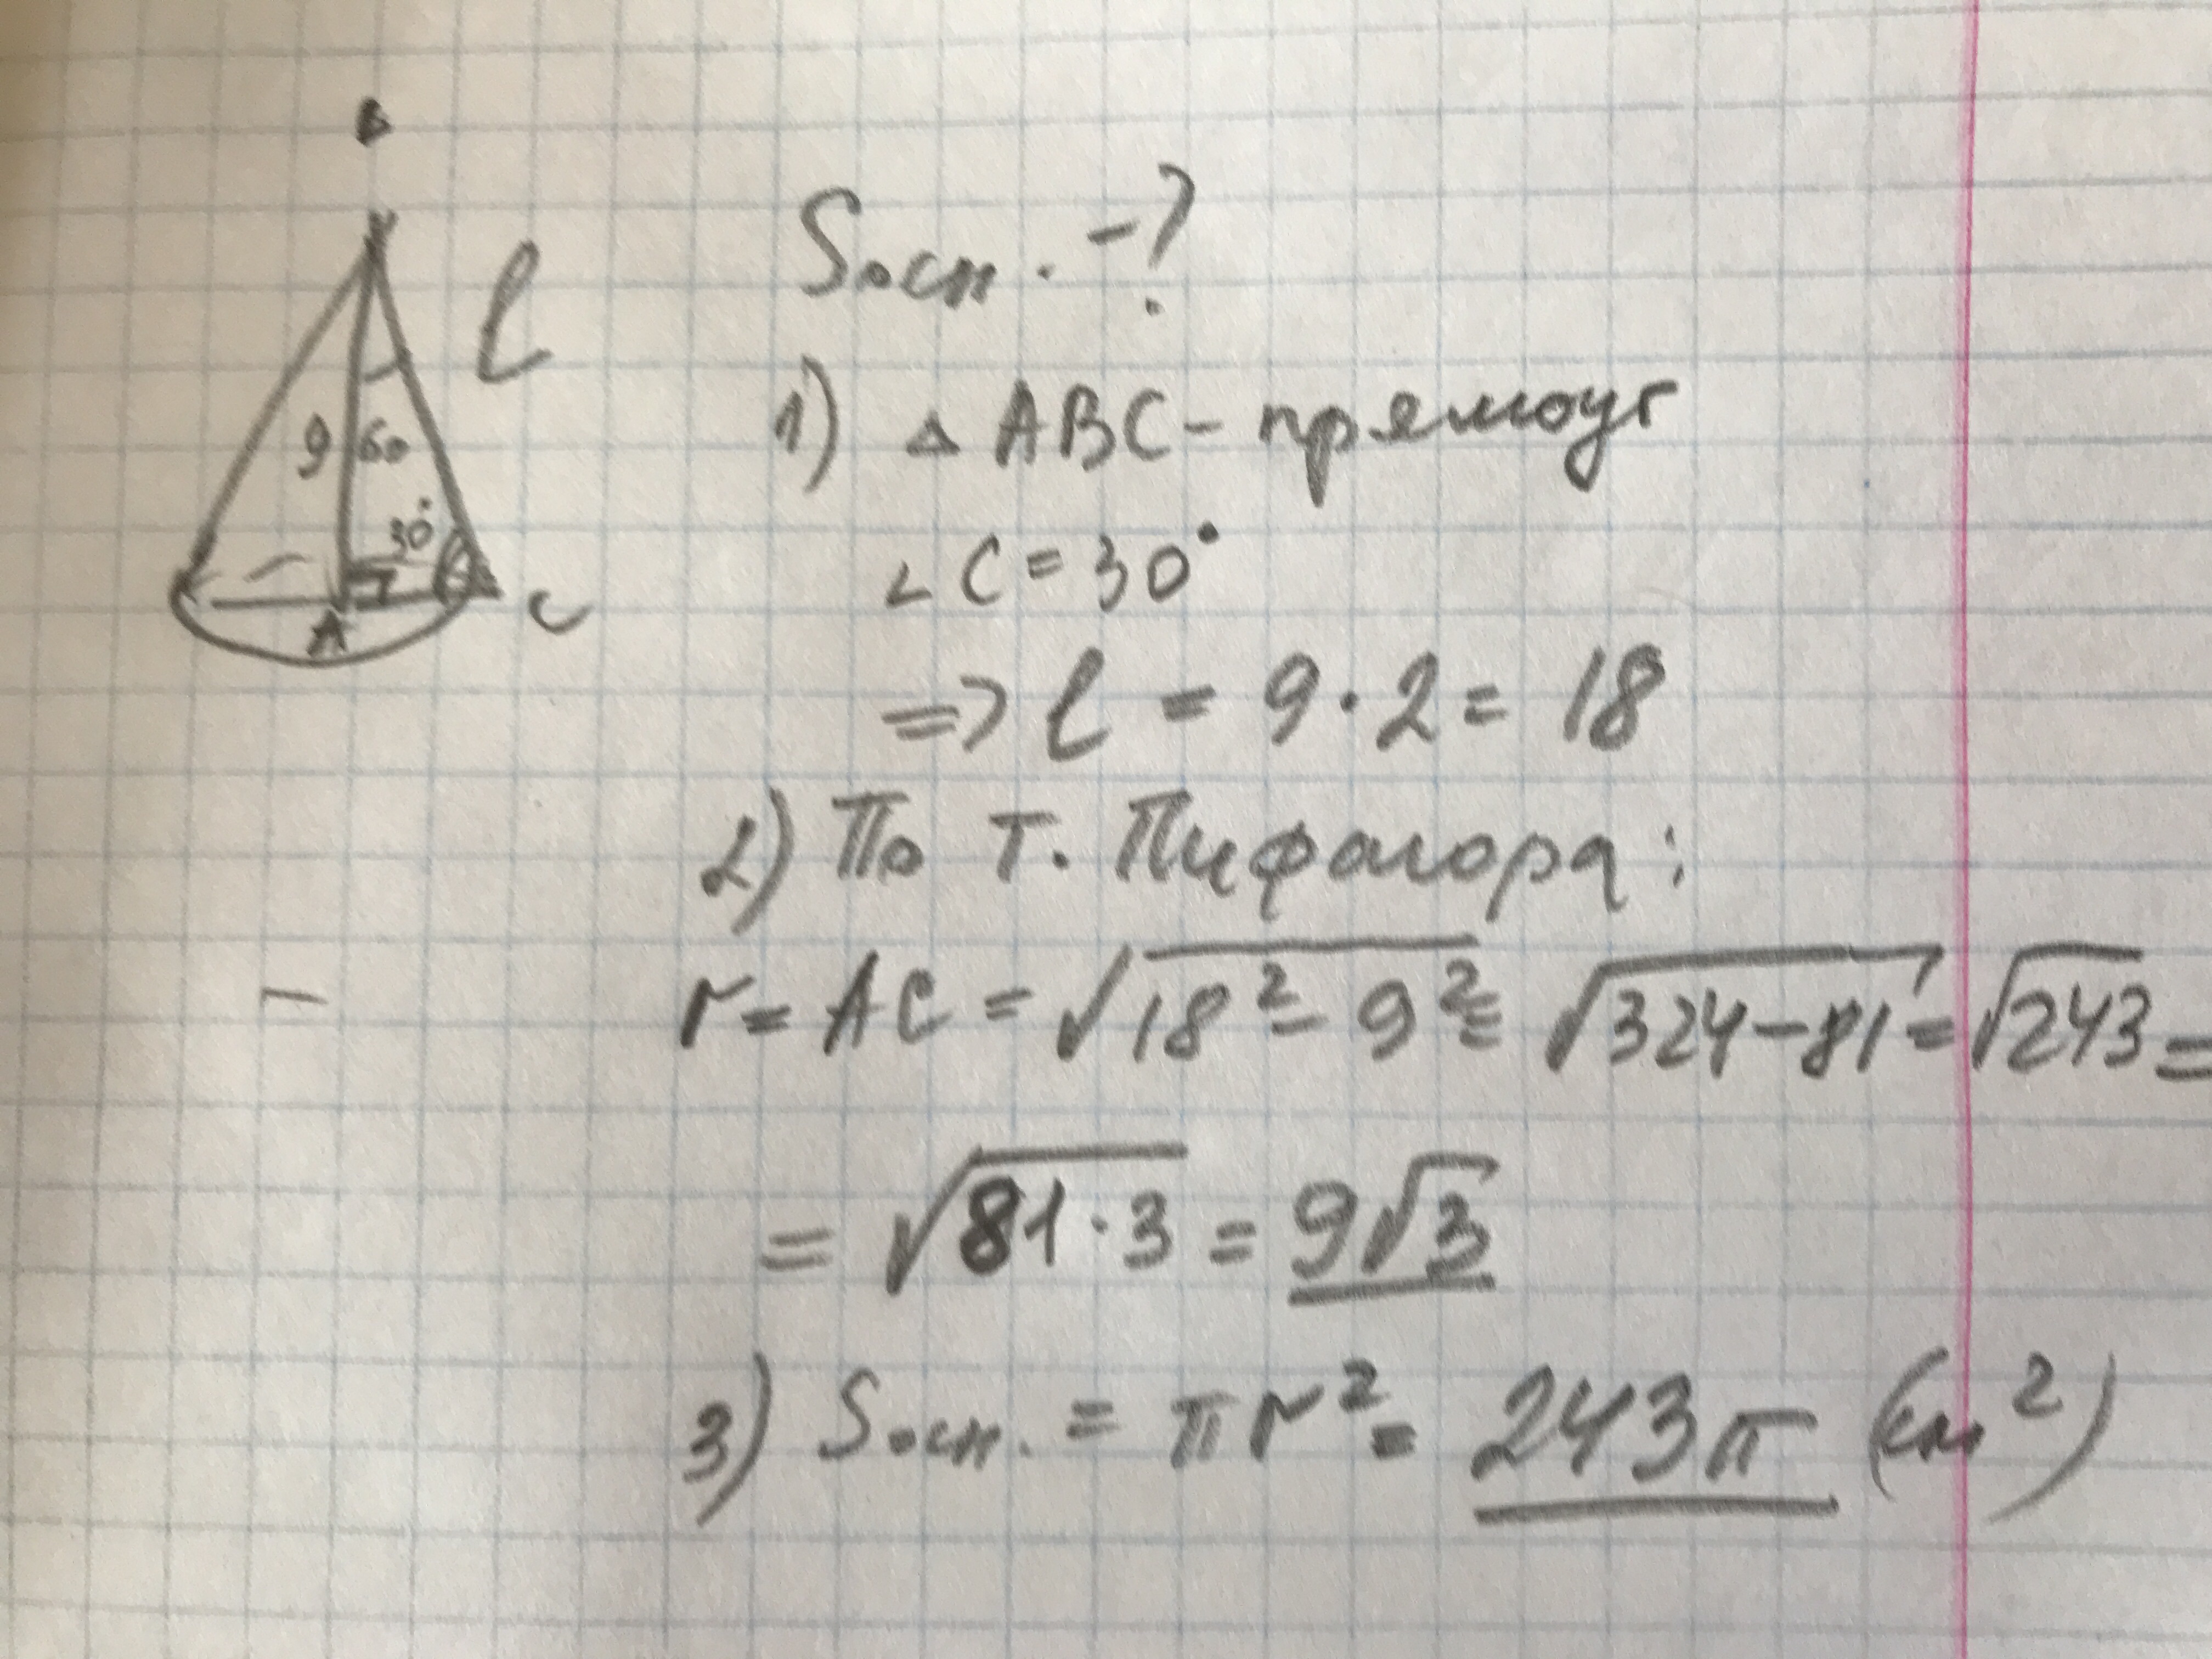 B
l
9
60
30°
A
C
Sосн. -?
1) △ ABC - прямоуг
∠ C = 30°
=> l = 9 · 2 = 18
2) По т. Пифагора:
r = AC = √18² - 9² = √324-81 = √243 =
= √81 · 3 = 9√3
3) Sосн. = πr² = 243π (см²)